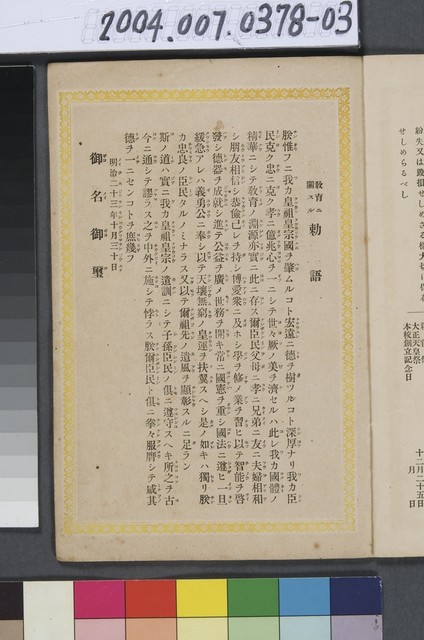 2004.007.0378-03
紛失又は毀損せしめざる様大切に
せしめらるべし
大正天皇祭
本校創立記念日
十二月二十五日
月 日
教育ニ關スル 勅語
朕惟フニ我カ皇祖皇宗國ヲ肇ムルコト宏遠ニ德ヲ樹ツルコト深厚ナリ我カ臣
民克ク忠ニ克ク孝ニ億兆心ヲ一ニシテ世々厥ノ美ヲ濟セルハ此レ我カ國體ノ
精華ニシテ敎育ノ淵源亦實ニ此ニ存ス爾臣民父母ニ孝ニ兄弟ニ友ニ夫婦相和
シ朋友相信シ恭儉己レヲ持シ博愛衆ニ及ホシ學ヲ修メ業ヲ習ヒ以テ智能ヲ啓
發シ德器ヲ成就シ進テ公益ヲ廣メ世務ヲ開キ常ニ國憲ヲ重シ國法ニ遵ヒ一旦
緩急アレハ義勇公ニ奉シ以テ天壤無窮ノ皇運ヲ扶翼スヘシ是ノ如キハ獨リ朕
カ忠良ノ臣民タルノミナラス又以テ爾祖先ノ遺風ヲ顯彰スルニ足ラン
斯ノ道ハ實ニ我カ皇祖皇宗ノ遺訓ニシテ子孫臣民ノ俱ニ遵守スヘキ所之ヲ古
今ニ通シテ謬ラス之ヲ中外ニ施シテ悖ラス朕爾臣民ト俱ニ拳々服膺シテ咸其
德ヲ一ニセンコトヲ庶幾フ
明治二十三年十月三十日
御名御璽